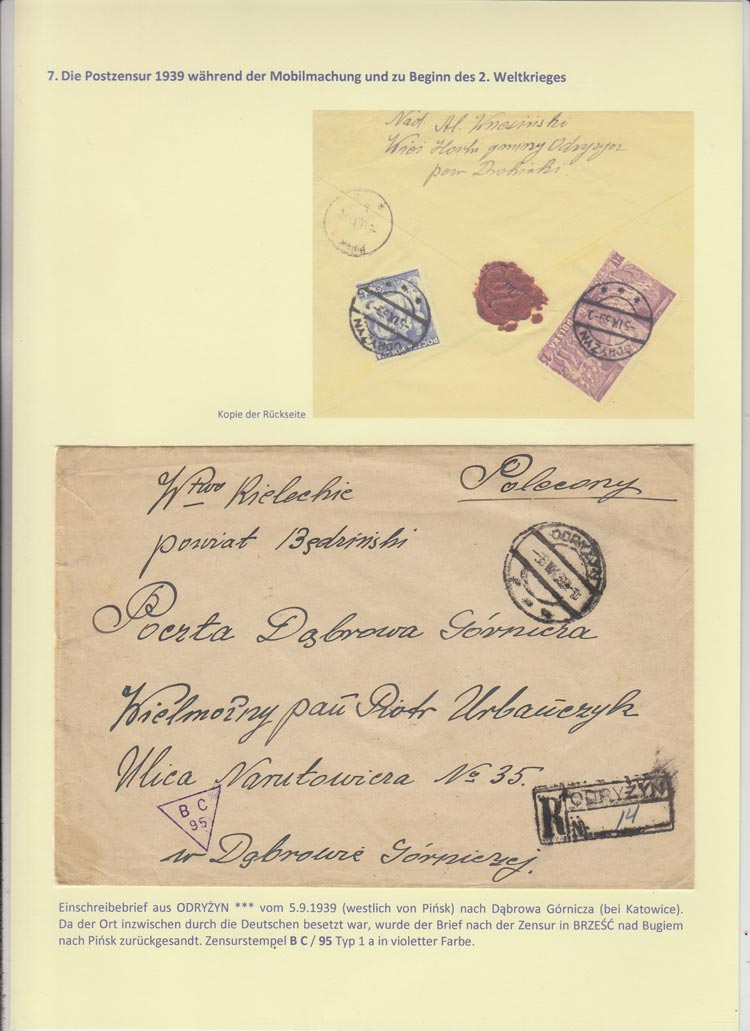 7. Die Postzensur 1939 während der Mobilmachung und zu Beginn des 2. Weltkrieges
Nad. Al.
Wieś gminy Odryżyn
pow.
PIŃSK
ODRYŻYN
POCZTA POLSKA
-5 IX 39-
ODRYŻYN
Kopie der Rückseite
Wtwo Kieleckie
Polecony
powiat Będziński
ODRYŻYN
Poczta Dąbrowa Górnicza
Wielmożny pan Piotr Urbańczyk
Ulica Narutowicza № 35.
B C
95
R ODRYŻYN
№ 14
w Dąbrowie Górniczej.
Einschreibebrief aus ODRYŻYN *** vom 5.9.1939 (westlich von Pińsk) nach Dąbrowa Górnicza (bei Katowice).
Da der Ort inzwischen durch die Deutschen besetzt war, wurde der Brief nach der Zensur in BRZEŚĆ nad Bugiem
nach Pińsk zurückgesandt. Zensurstempel B C / 95 Typ 1 a in violetter Farbe.